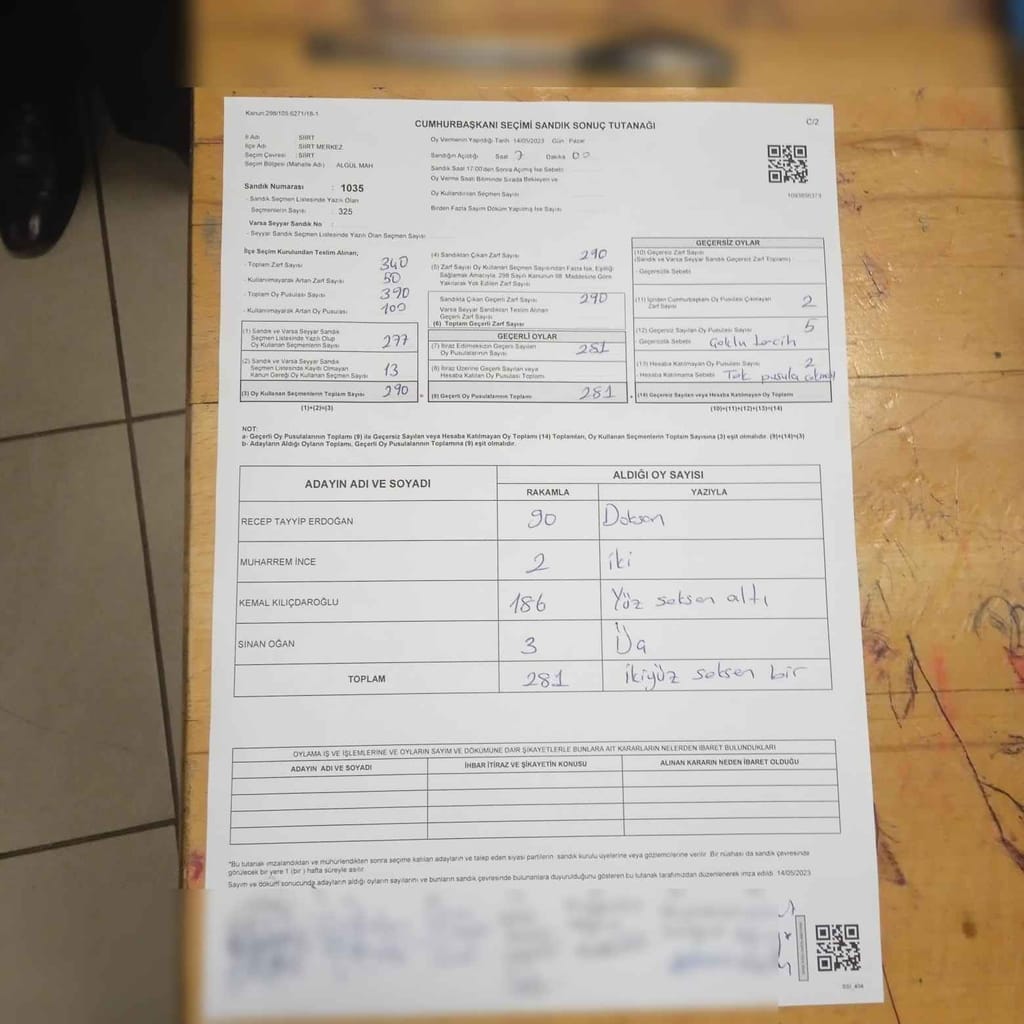 Kanun:298/105.6271/18-1
C/2
CUMHURBAŞKANI SEÇİMİ SANDIK SONUÇ TUTANAĞI
İl Adı : SİİRT
İlçe Adı : SİİRT MERKEZ
Seçim Çevresi : SİİRT
Seçim Bölgesi (Mahalle Adı) ALGÜL MAH
Sandık Numarası : 1035
- Sandık Seçmen Listesinde Yazılı Olan
Seçmenlerin Sayısı : 325
Varsa Seyyar Sandık No :
- Seyyar Sandık Seçmen Listesinde Yazılı Olan Seçmen Sayısı
Oy Vermenin Yapıldığı Tarih 14/05/2023 Gün Pazar
Sandığın Açıldığı Saat 7 Dakika 00
Sandık Saat 17:00'den Sonra Açılmış İse Sebebi
Oy Verme Saati Bitiminde Sırada Bekleyen ve
Oy Kullandırılan Seçmen Sayısı
Birden Fazla Sayım Döküm Yapılmış İse Sayısı
İlçe Seçim Kurulundan Teslim Alınan;
- Toplam Zarf Sayısı 340
- Kullanılmayarak Artan Zarf Sayısı 50
- Toplam Oy Pusulası Sayısı 390
- Kullanılmayarak Artan Oy Pusulası 100
(1) Sandık ve Varsa Seyyar Sandık
Seçmen Listesinde Yazılı Olup
Oy Kullanan Seçmenlerin Sayısı 277
(2) Sandık ve Varsa Seyyar Sandık
Seçmen Listesinde Kayıtlı Olmayan
Kanun Gereği Oy Kullanan Seçmen Sayısı 13
(3) Oy Kullanan Seçmenlerin Toplam Sayısı 290
(1)+(2)=(3)
(4) Sandıktan Çıkan Zarf Sayısı 290
(5) Zarf Sayısı Oy Kullanan Seçmen Sayısından Fazla İse, Eşitliği
Sağlamak Amacıyla, 298 Sayılı Kanunun 98. Maddesine Göre
Yakılarak Yok Edilen Zarf Sayısı
Sandıkta Çıkan Geçerli Zarf Sayısı 290
Varsa Seyyar Sandıktan Teslim Alınan
Geçerli Zarf Sayısı
(6) Toplam Geçerli Zarf Sayısı
GEÇERLİ OYLAR
(7) İtiraz Edilmeksizin Geçerli Sayılan
Oy Pusulalarının Sayısı 281
(8) İtiraz Üzerine Geçerli Sayılan veya
Hesaba Katılan Oy Pusulası Toplamı
(9) Geçerli Oy Pusulalarının Toplamı 281
GEÇERSİZ OYLAR
(10) Geçersiz Zarf Sayısı
(Sandık ve Varsa Seyyar Sandık Geçersiz Zarf Toplamı)
- Geçersizlik Sebebi
(11) İçinden Cumhurbaşkanı Oy Pusulası Çıkmayan
Zarf Sayısı 2
(12) Geçersiz Sayılan Oy Pusulası Sayısı 5
- Geçersizlik Sebebi Çoklu tercih
(13) Hesaba Katılmayan Oy Pusulası Sayısı 2
- Hesaba Katılmama Sebebi Tek pusula
(14) Geçersiz Sayılan veya Hesaba Katılmayan Oy Toplamı
(10)+(11)+(12)+(13)=(14)
NOT:
a- Geçerli Oy Pusulalarının Toplamı (9) ile Geçersiz Sayılan veya Hesaba Katılmayan Oy Toplamı (14) Toplamları, Oy Kullanan Seçmenlerin Toplam Sayısına (3) eşit olmalıdır. (9)+(14)=(3)
b- Adayların Aldığı Oyların Toplamı, Geçerli Oy Pusulalarının Toplamına (9) eşit olmalıdır.
ADAYIN ADI VE SOYADI
ALDIĞI OY SAYISI
RAKAMLA YAZIYLA
RECEP TAYYİP ERDOĞAN 90 Doksan
MUHARREM İNCE 2 iki
KEMAL KILIÇDAROĞLU 186 Yüz seksen altı
SİNAN OĞAN 3
TOPLAM 281 ikiyüz seksen bir
OYLAMA İŞ VE İŞLEMLERİNE VE OYLARIN SAYIM VE DÖKÜMÜNE DAİR ŞİKAYETLERLE BUNLARA AİT KARARLARIN NELERDEN İBARET BULUNDUKLARI
ADAYIN ADI VE SOYADI İHBAR İTİRAZ VE ŞİKAYETİN KONUSU ALINAN KARARIN NEDEN İBARET OLDUĞU
*Bu tutanak imzalandıktan ve mühürlendikten sonra seçime katılan adayların ve talep eden siyasi partilerin sandık kurulu üyelerine veya gözlemcilerine verilir. Bir nüshası da sandık çevresinde
görülecek bir yere 1 (bir) hafta süreyle asılır.
Sayım ve döküm sonucunda adayların aldığı oyların sayılarını ve bunların sandık çevresinde bulunanlara duyurulduğunu gösteren bu tutanak tarafımızdan düzenlenerek imza edildi. 14/05/2023